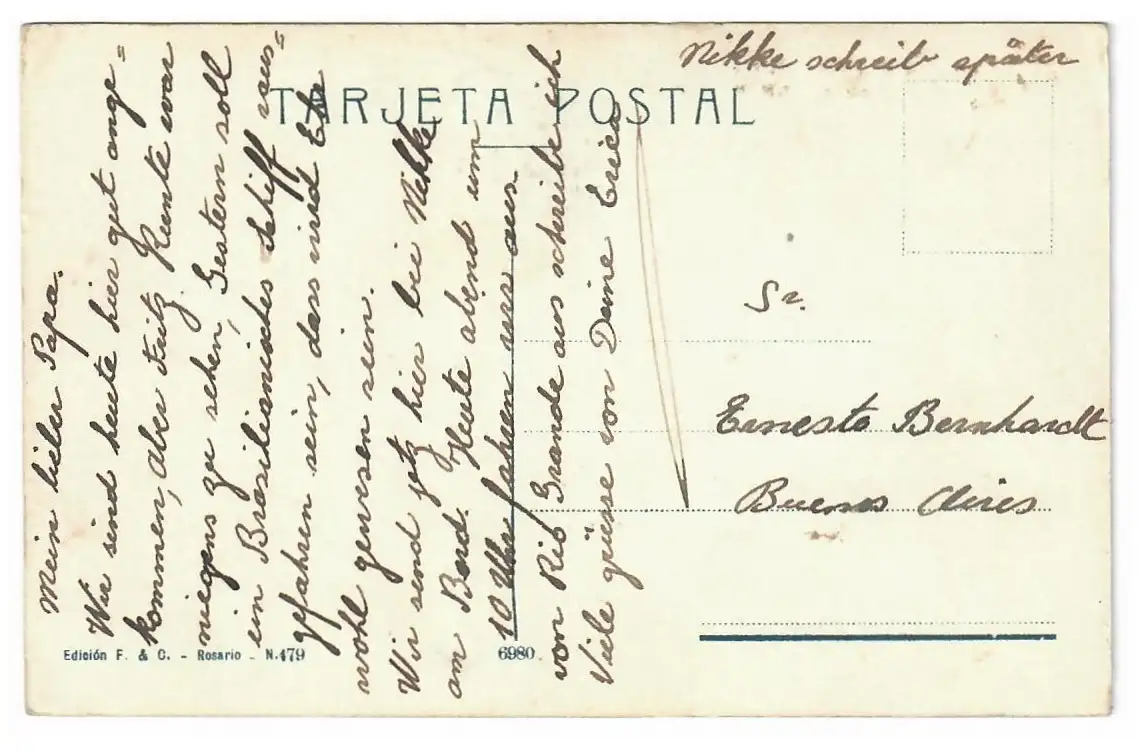 Nikke schreib später
TARJETA POSTAL
Mein lieber Papa.
Wir sind heute hier gut ange=
kommen, aber Fritz Kunte war
niegens zu sehen, Gestern soll
ein Brasilianisches Schiff raus=
gefahren sein, dass wird Er
wohl gewesen sein.
Wir send jetz hier bei Nikke
am Bord. Heute abend um
10 Uhr fahren wir aus.
von Rio Grande aus schreibe ich
Viele grüsse von Deine Erica
Sr.
Ernesto Bernhardt
Buenos Aires
Edición F. & C. - Rosario - N.479
6980